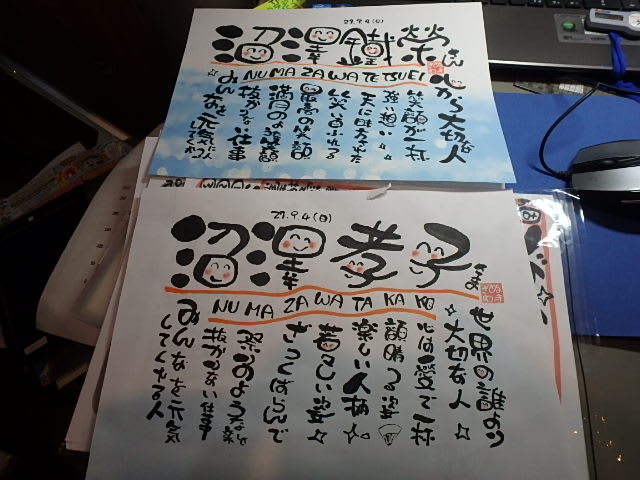 27.9.4(日)
沼澤鐵榮さん
NUMAZAWA TETSUEI
心から大切な人
笑顔が一杯
強い想い☆☆
天に味方された
笑いあふれる
最高の笑顔
満月のような笑顔
抜かりない仕事
☆みんなを元気に
してくれる人
27.9.4(日)
沼澤孝子さま
NUMAZAWA TAKAKO
世界の誰より
☆大切な人☆
心は愛で一杯
顔晴る姿
楽しい人柄
若々しい姿☆
ざっくばらんで
祭のような
抜かりない仕事
みんなを元気
にしてくれる人